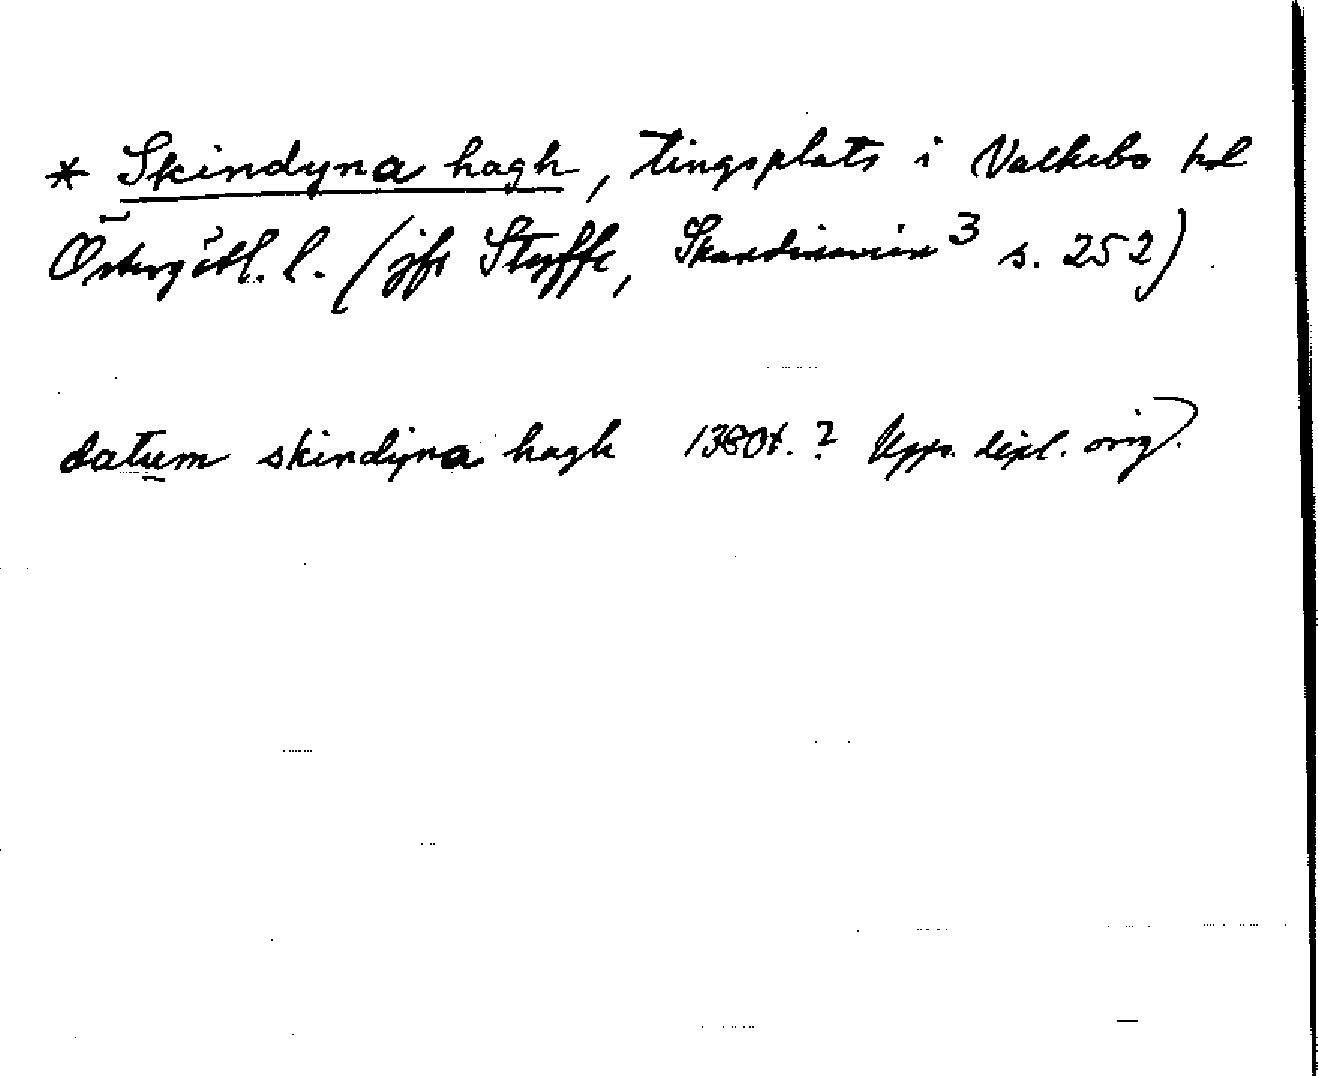 * Skindyna hagh, tingsplats i Valkebo hd
Östergötl. l. (jfr Styffe, Skandinavien³ s. 252)
datum skindyna hagh 1380t. ? Upps. dipl. orig.